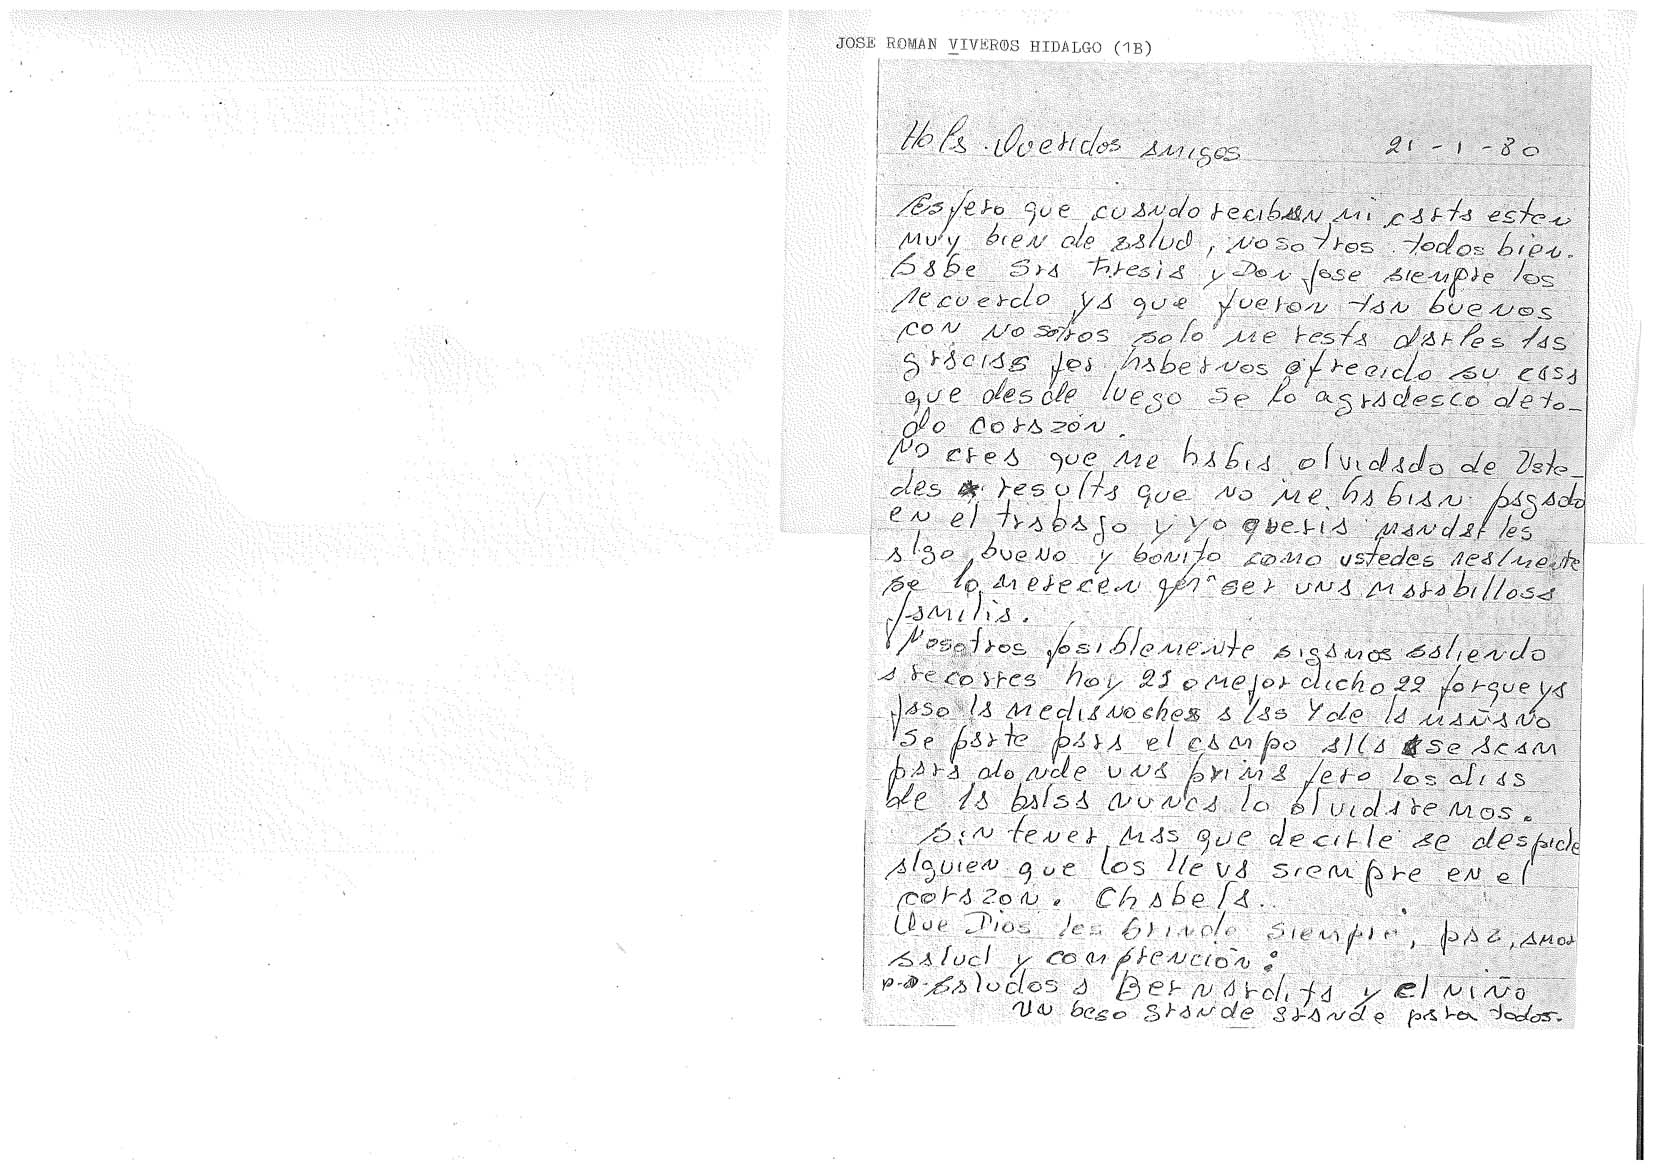 JOSE ROMAN VIVEROS HIDALGO (1B)
Hola. Queridos amigos 21-1-80
Espero que cuando reciban mi carta esten
muy bien de salud, nosotros todos bien.
Sabe Sra Tiresia y Don Jose siempre los
recuerdo ya que fueron tan buenos
con nosotros solo me resta darles las
gracias por habernos ofrecido su casa
que desde luego se lo agradesco de to-
do corazón.
No crea que me habia olvidado de Uste-
des resulta que no me habian pagado
en el trabajo y yo queria mandar les
algo bueno y bonito como ustedes realmente
se lo merecen por ser una marabillosa
familia.
Nosotros posiblemente sigamos saliendo
a recorres hoy 21 o mejor dicho 22 porque ya
paso la medianoches a las 4 de la mañana
se parte para el campo alla se acam
para donde una prima pero los dias
de la balsa nunca lo olvidaremos.
Sin tener mas que decirle se despide
alguien que los lleva siempre en el
corazon. Chabela.
Que Dios les brinde siempre, paz, amor
salud y comprención:
p.d. Saludos a Bernardita y el niño
Un beso grande grande para todos.